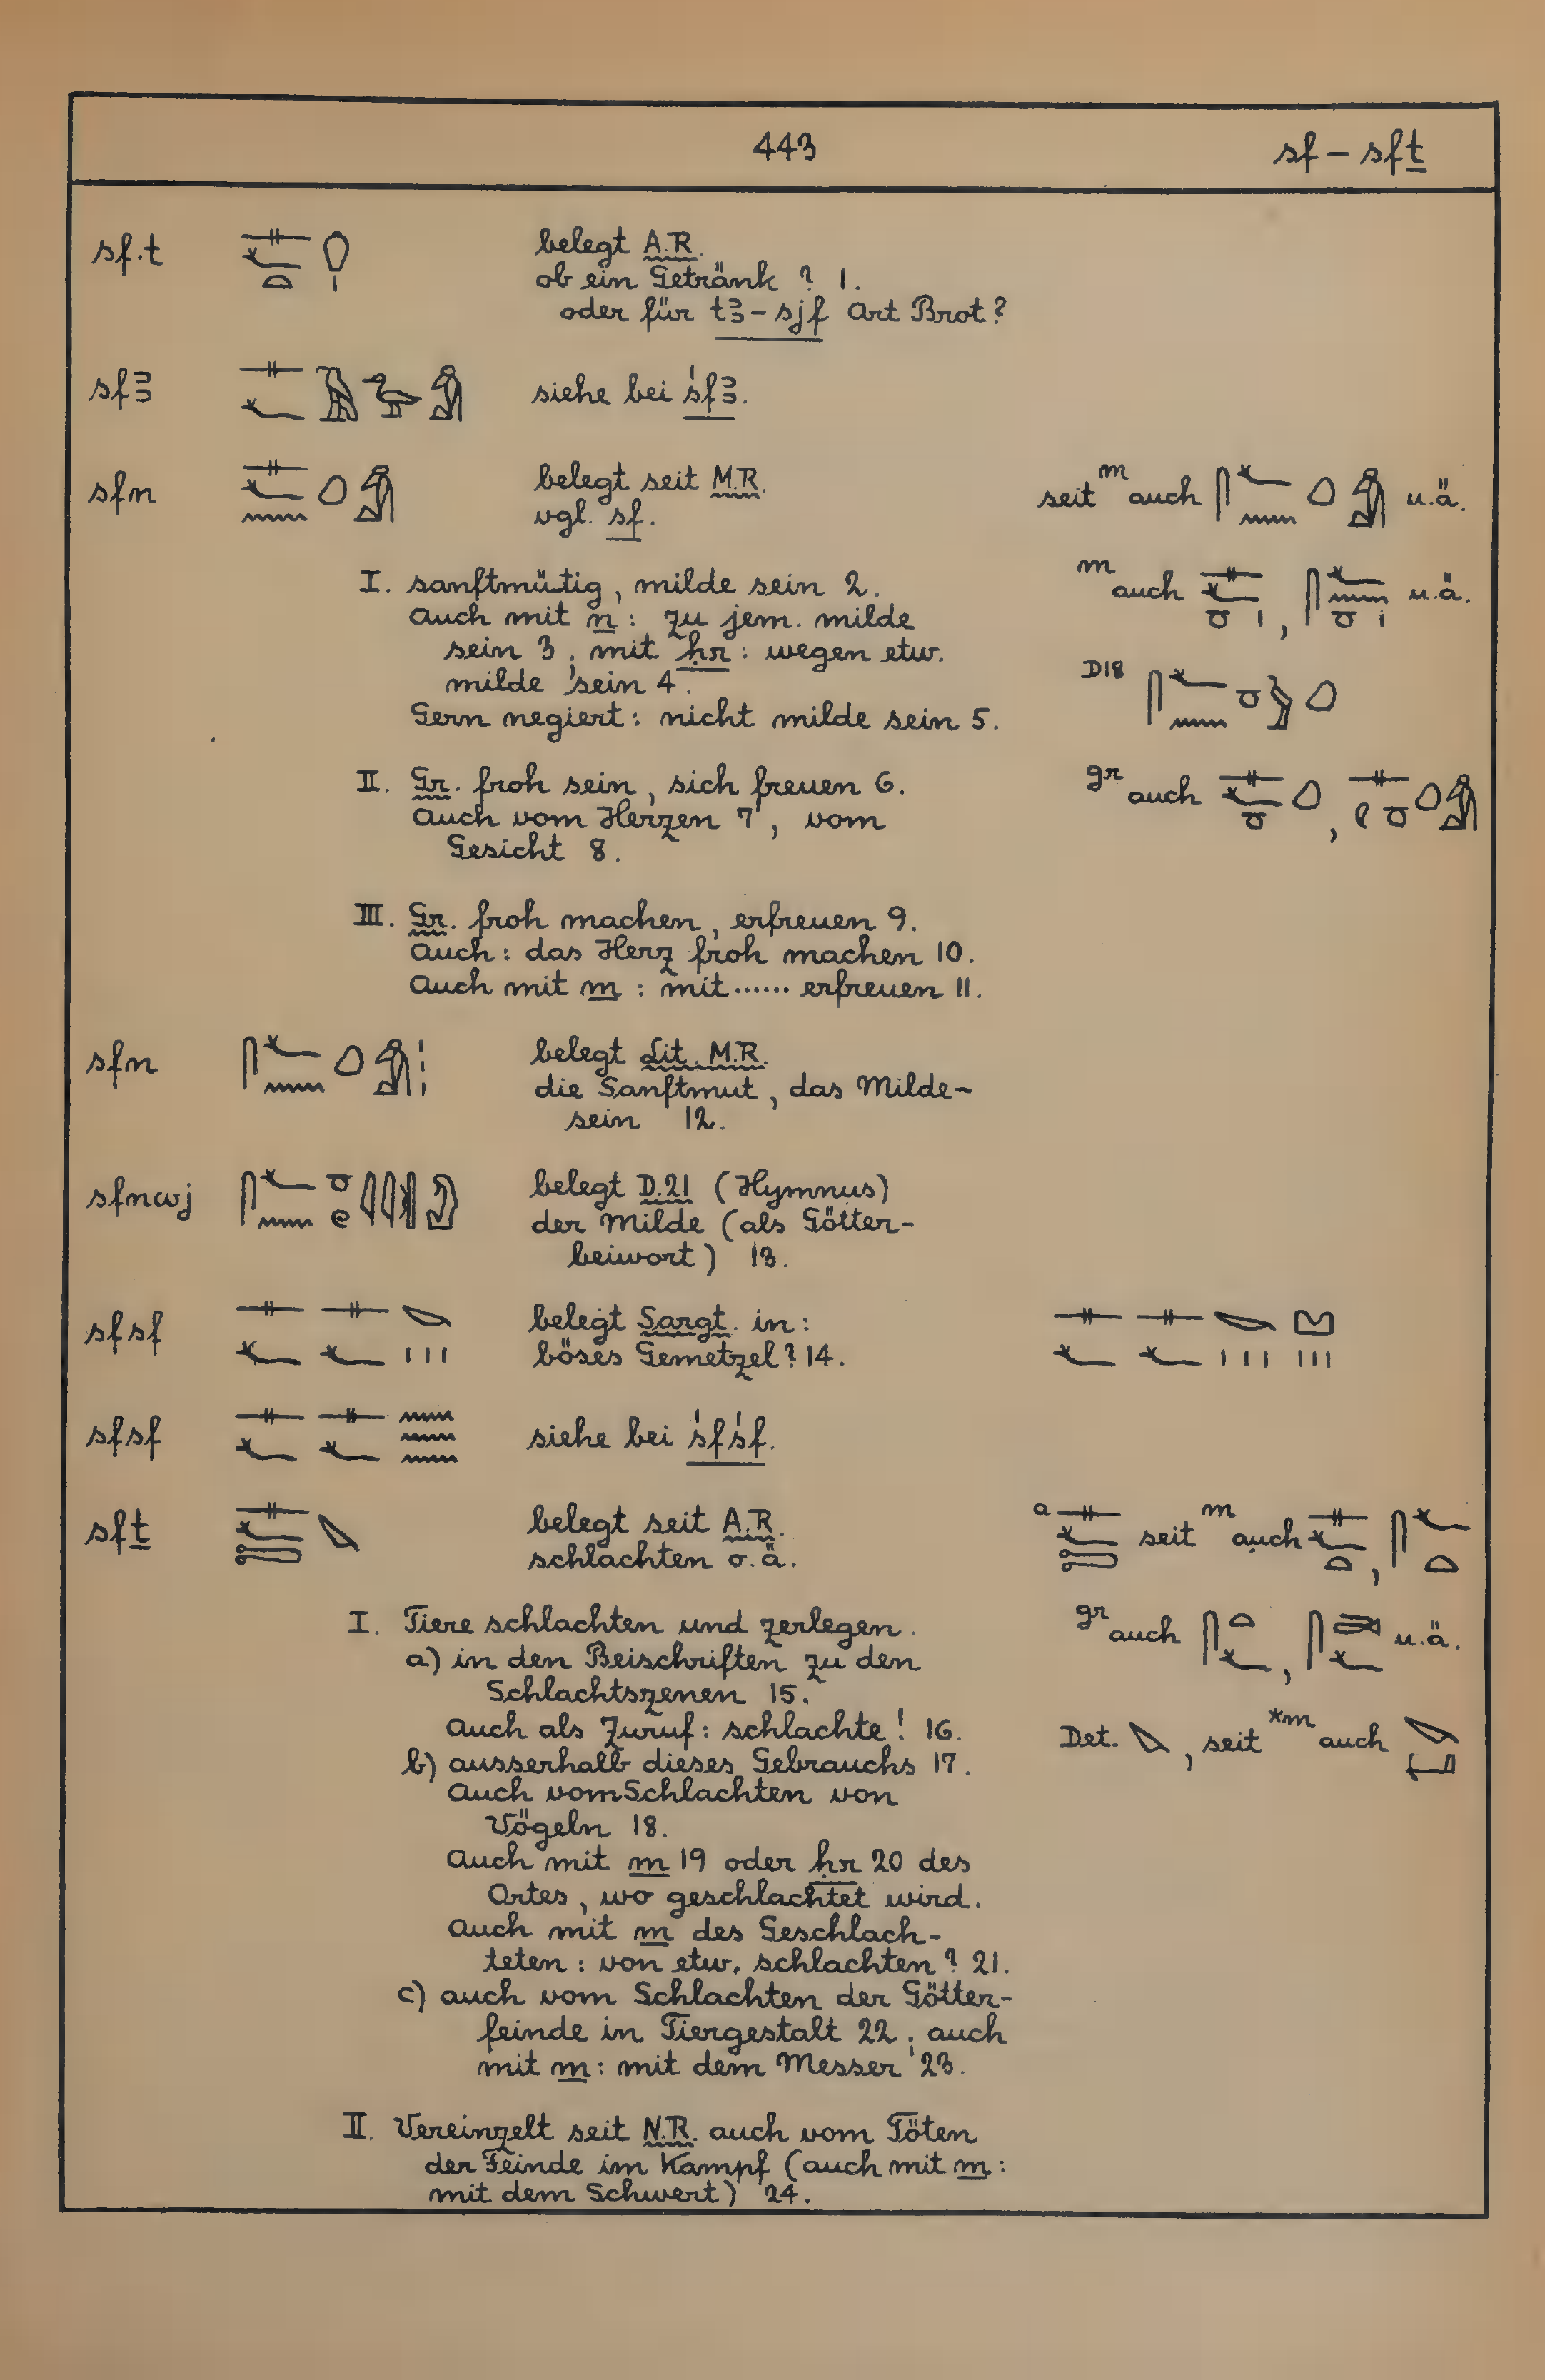 443
sf – sfṯ
sf.t
belegt A.R.
ob ein Getränk ? 1.
oder für tꜣ-sjf Art Brot?
sfꜣ
siehe bei śfꜣ.
sfn
belegt seit M.R.
vgl. sf.
seit m auch u.ä.
I. sanftmütig, milde sein 2.
Auch mit n : zu jem. milde
sein 3 ; mit ḥr : wegen etw.
milde sein 4.
Gern negiert : nicht milde sein 5.
m auch , u.ä.
D18
II. Gr. froh sein, sich freuen 6.
Auch vom Herzen 7, vom
Gesicht 8.
gr auch ,
III. Gr. froh machen, erfreuen 9.
Auch : das Herz froh machen 10.
Auch mit m : mit ...... erfreuen 11.
sfn
belegt Lit. M.R.
die Sanftmut, das Milde-
sein 12.
sfnwj
belegt D.21 (Hymnus)
der Milde (als Götter-
beiwort) 13.
sfsf
belegt Sargt. in :
böses Gemetzel ? 14.
sfsf
siehe bei śfśf.
sfṯ
belegt seit A.R.
schlachten o.ä.
a seit m auch ,
I. Tiere schlachten und zerlegen.
a) in den Beischriften zu den
Schlachtszenen 15.
Auch als Zuruf : schlachte ! 16.
b) ausserhalb dieses Gebrauchs 17.
Auch vom Schlachten von
Vögeln 18.
Auch mit m 19 oder ḥr 20 des
Ortes, wo geschlachtet wird.
Auch mit m des Geschlach-
teten : von etw. schlachten ? 21.
c) auch vom Schlachten der Götter-
feinde in Tiergestalt 22 ; auch
mit m : mit dem Messer 23.
gr auch , u.ä.
Det. , seit *m auch
II. Vereinzelt seit N.R. auch vom Töten
der Feinde im Kampf (auch mit m :
mit dem Schwert) 24.